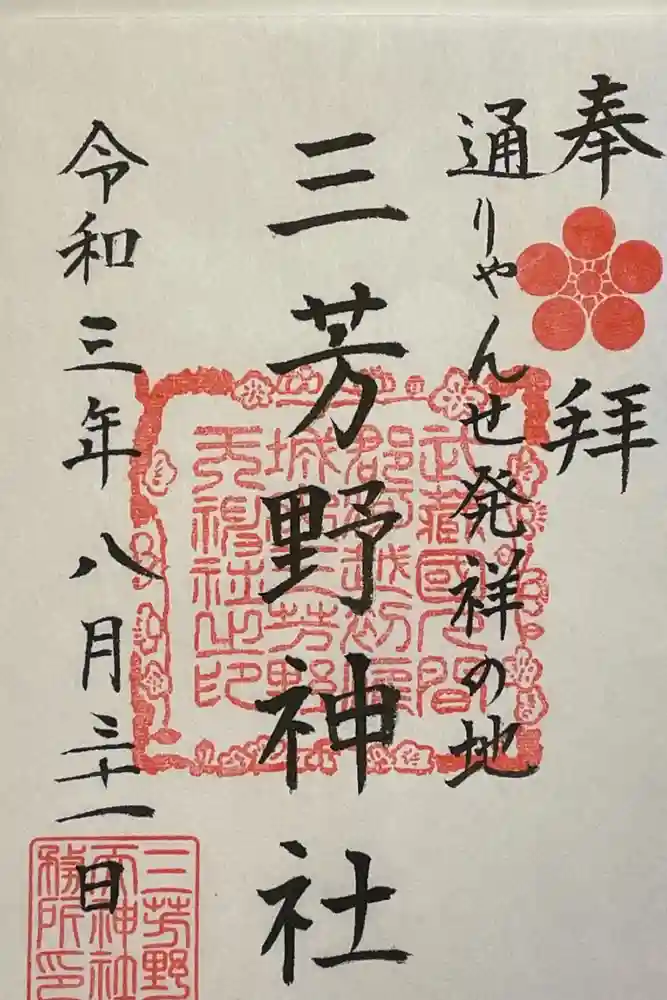 奉拝
通りゃんせ発祥の地
三芳野神社
令和三年八月三十一日
武蔵國入間
郡河越初雁
城内三芳野
天神社之印
三芳野
天神社
務所印